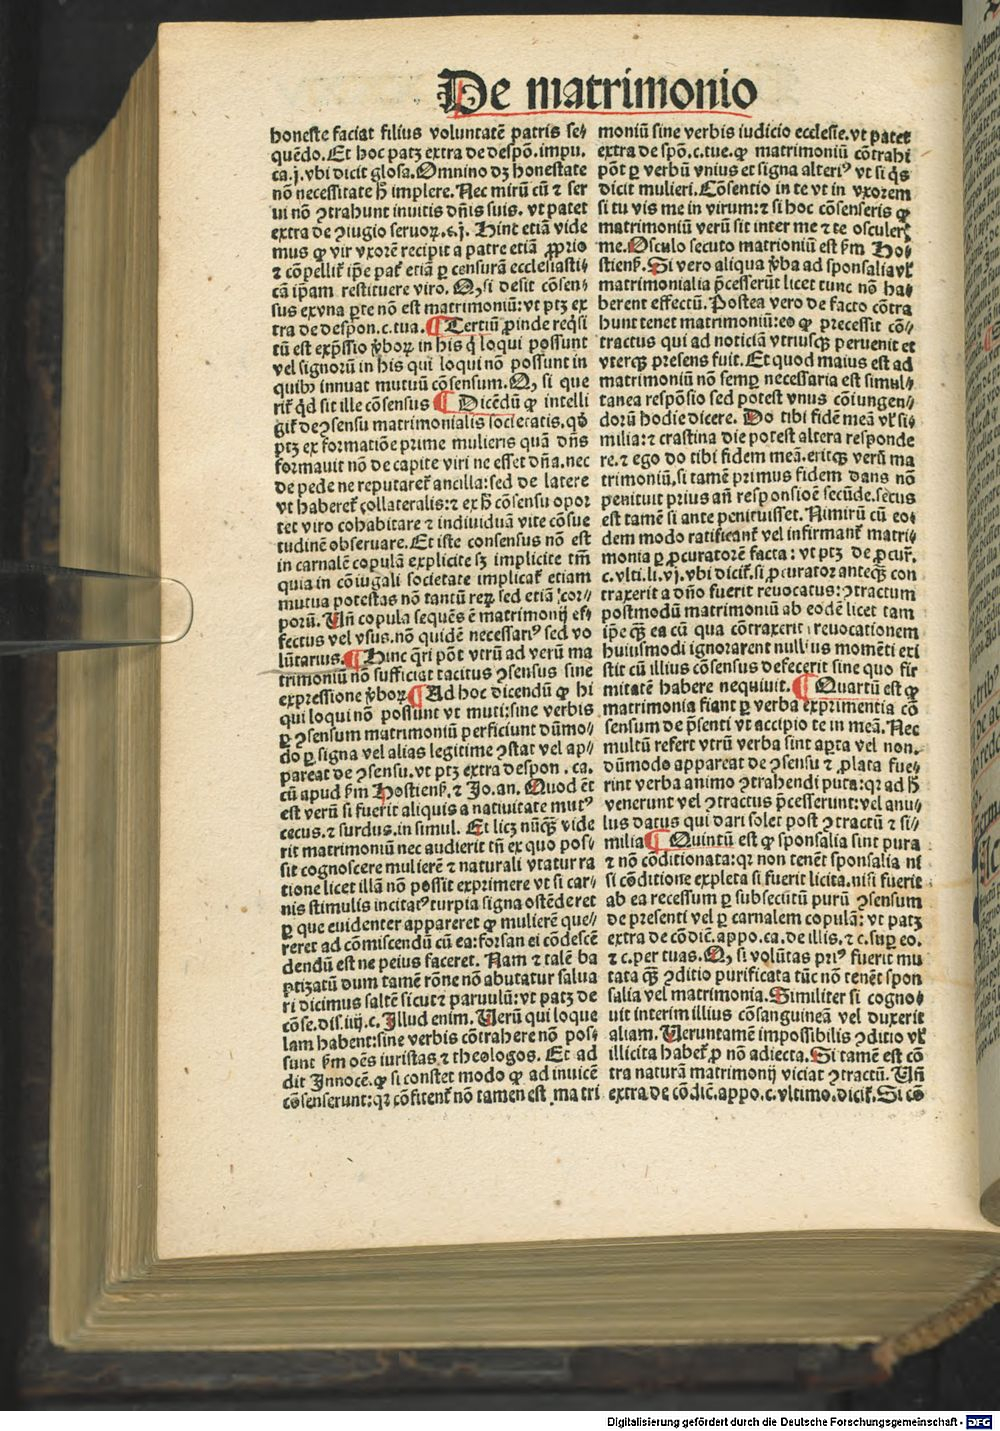 De matrimonio
honeste faciat filius voluntatē patris se⸗
quēdo. Et hoc patꝫ extra de despō. impu.
ca. j. vbi dicit glosa. Omnino dꝫ honestate
nō necessitate h̄ implere. Nec mirū cū ⁊ ser
ui nō ꝯtrahunt inuitis dn̄is suis. vt patet
extra de ꝯiugio seruoꝝ. c. j. Hinc etiā vide
mus ꝙ vir vxorē recipit a patre etiā ꝓprio
⁊ cōpellit᷑ ip̄e pat᷑ etiā ꝑ censurā ecclesiasti⸗
cā ip̄am restituere viro. Qꝫ si desit cōsen⸗
sus ex vna ꝑte nō est matrimoniū: vt ptꝫ ex
tra de despon. c. tua. ¶ Tertiū ꝓinde reqͥsi
tū est exp̄ssio v̓boꝝ in his qͥ loqui possunt
vel signorū in his qui loqui nō possunt in
quibꝫ innuat mutuū cōsensum. Qꝫ si que
rit᷑ qͥd sit ille cōsensus ¶ Dicēdū ꝙ intelli
git᷑ de ꝯsensu matrimonialis societatis. qd̓
ptꝫ ex formatiōe prime mulieris quā dn̄s
formauit nō de capite viri ne esset dn̄a. nec
de pede ne reputaret᷑ ancilla: sed de latere
vt haberet᷑ collateralis: ⁊ ex h̄ cōsensu opor
tet viro cohabitare ⁊ indiuiduā vite cōsue
tudinē obseruare. Et iste consensus nō est
in carnalē copulā explicite sꝫ implicite tm̄
quia in cōiugali societate implicat᷑ etiam
mutua potestas nō tantū reꝝ sed etiā cor⸗
porū. Vn̄ copula sequēs ē matrimonij ef⸗
fectus vel vsus. nō quidē necessariꝰ sed vo
lūtarius. ¶ Hinc q̄ri pōt vtrū ad verū ma
trimoniū nō sufficiat tacitus ꝯsensus sine
expressione v̓boꝝ ¶ Ad hoc dicendū ꝙ hi
qui loqui nō possunt vt muti: sine verbis
ꝑ ꝯsensum matrimoniū perficiunt dūmo⸗
do ꝑ signa vel alias legitime ꝯstat vel ap⸗
pareat de ꝯsensu. vt ptꝫ extra despon. ca.
cū apud ẜm Hostienẜ. ⁊ Jo. an. Quod ēt
est verū si fuerit aliquis a natiuitate mutꝰ
cecus. ⁊ surdus. in simul. Et licꝫ nūq̄ꝫ vide
rit matrimoniū nec audierit tn̄ ex quo pos⸗
sit cognoscere mulierē ⁊ naturali vtatur ra
tione licet illā nō possit exprimere vt si car⸗
nis stimulis incitatꝰ turpia signa ostēderet
ꝑ que euidenter appareret ꝙ mulierē que⸗
reret ad cōmiscendū cū ea: forsan ei cōdescē
dendū est ne peius faceret. Nam ⁊ talē ba
ptizatū dum tamē rōne nō abutatur salua
ri dicimus saltē sicut ⁊ paruulū: vt patꝫ de
cōse. dis. iiij. c. Illud enim. Verū qui loque
lam habent: sine verbis cōtrahere nō pos⸗
sunt ẜm oēs iuristas ⁊ theologos. Et ad
dit Innocē. ꝙ si constet modo ꝙ ad inuicē
cōsenserunt: qꝛ cōfitent᷑ nō tamen est matri
moniū sine verbis iudicio ecclesie. vt patet
extra de spō. c. tue. ꝙ matrimoniū cōtrahi
pōt ꝑ verbū vnius et signa alteriꝰ vt si qͥs
dicit mulieri. Cōsentio in te vt in vxorem
si tu vis me in virum: ⁊ si hoc cōsenseris ꝙ
matrimoniū verū sit inter me ⁊ te osculer᷑
me. Osculo secuto matrioniū est ẜm Ho⸗
stienẜ. Si vero aliqua v̓ba ad sponsalia vl̓
matrimonialia p̄cesserūt licet tunc nō ha⸗
berent effectū. Postea vero de facto cōtra
hunt tenet matrimoniū: eo ꝙ precessit cō⸗
tractus qui ad noticiā vtriusqꝫ peruenit et
vterqꝫ presens fuit. Et quod maius est ad
matrimoniū nō semꝑ necessaria est simul⸗
tanea respōsio sed potest vnus cōiungen⸗
dorū hodie dicere. Do tibi fidē meā vl̓ si⸗
milia: ⁊ crastina die potest altera responde
re. ⁊ ego do tibi fidem meā. eritqꝫ verū ma
trimoniū, si tamē primus fidem dans nō
penituit prius an̄ responsioē secūde. secus
est tamē si ante penituisset. Nimirū cū eo⸗
dem modo ratificant᷑ vel infirmant᷑ matri⸗
monia ꝑ ꝓcuratorē facta: vt ptꝫ de ꝓcur᷑.
c. vlti. li. vj. vbi dicit᷑. si ꝓcurator anteqꝫ con
traxerit a dn̄o fuerit reuocatus: ꝯtractum
postmodū matrimoniū ab eodē licet tam
ip̄e qꝫ ea cū qua cōtraxerit reuocationem
huiusmodi ignorarent nullius momēti exi
stit cū illius cōsensus defecerit sine quo fir
mitatē habere nequiuit. ¶ Quartū est ꝙ
matrimonia fiant ꝑ verba exprimentia cō
sensum de p̄senti vt accipio te in meā. Nec
multū refert vtrū verba sint aꝑta vel non.
dūmodo appareat de ꝯsensu ⁊ ꝓlata fue⸗
rint verba animo ꝯtrahendi puta: qꝛ ad h̄
venerunt vel ꝯtractus p̄cesserunt: vel anu⸗
lus datus qui dari solet post ꝯtractū ⁊ si⸗
milia ¶ Quintū est ꝙ sponsalia sint pura
⁊ nō cōditionata: qꝛ non tenēt sponsalia ni
si cōditione expleta si fuerit licita. nisi fuerit
ab ea recessum ꝑ subsecutū purū ꝯsensum
de presenti vel ꝑ carnalem copulā: vt patꝫ
extra de cōdic̄. appo. ca. de illis. ⁊ c. suꝑ eo.
⁊ c. per tuas. Qꝫ si volūtas priꝰ fuerit mu
tata qꝫ ꝯditio purificata tūc nō tenēt spon
salia vel matrimonia. Similiter si cogno⸗
uit interim illius cōsanguineā vel duxerit
aliam. Veruntamē impossibilis ꝯditio vl̓
illicita habet᷑ ꝓ nō adiecta. Si tamē est cō
tra naturā matrimonij viciat ꝯtractū. Vn̄
extra de cōdic̄. appo. c. vltimo. dicit᷑. Si cō
Digitalisierung gefördert durch die Deutsche Forschungsgemeinschaft - DFG